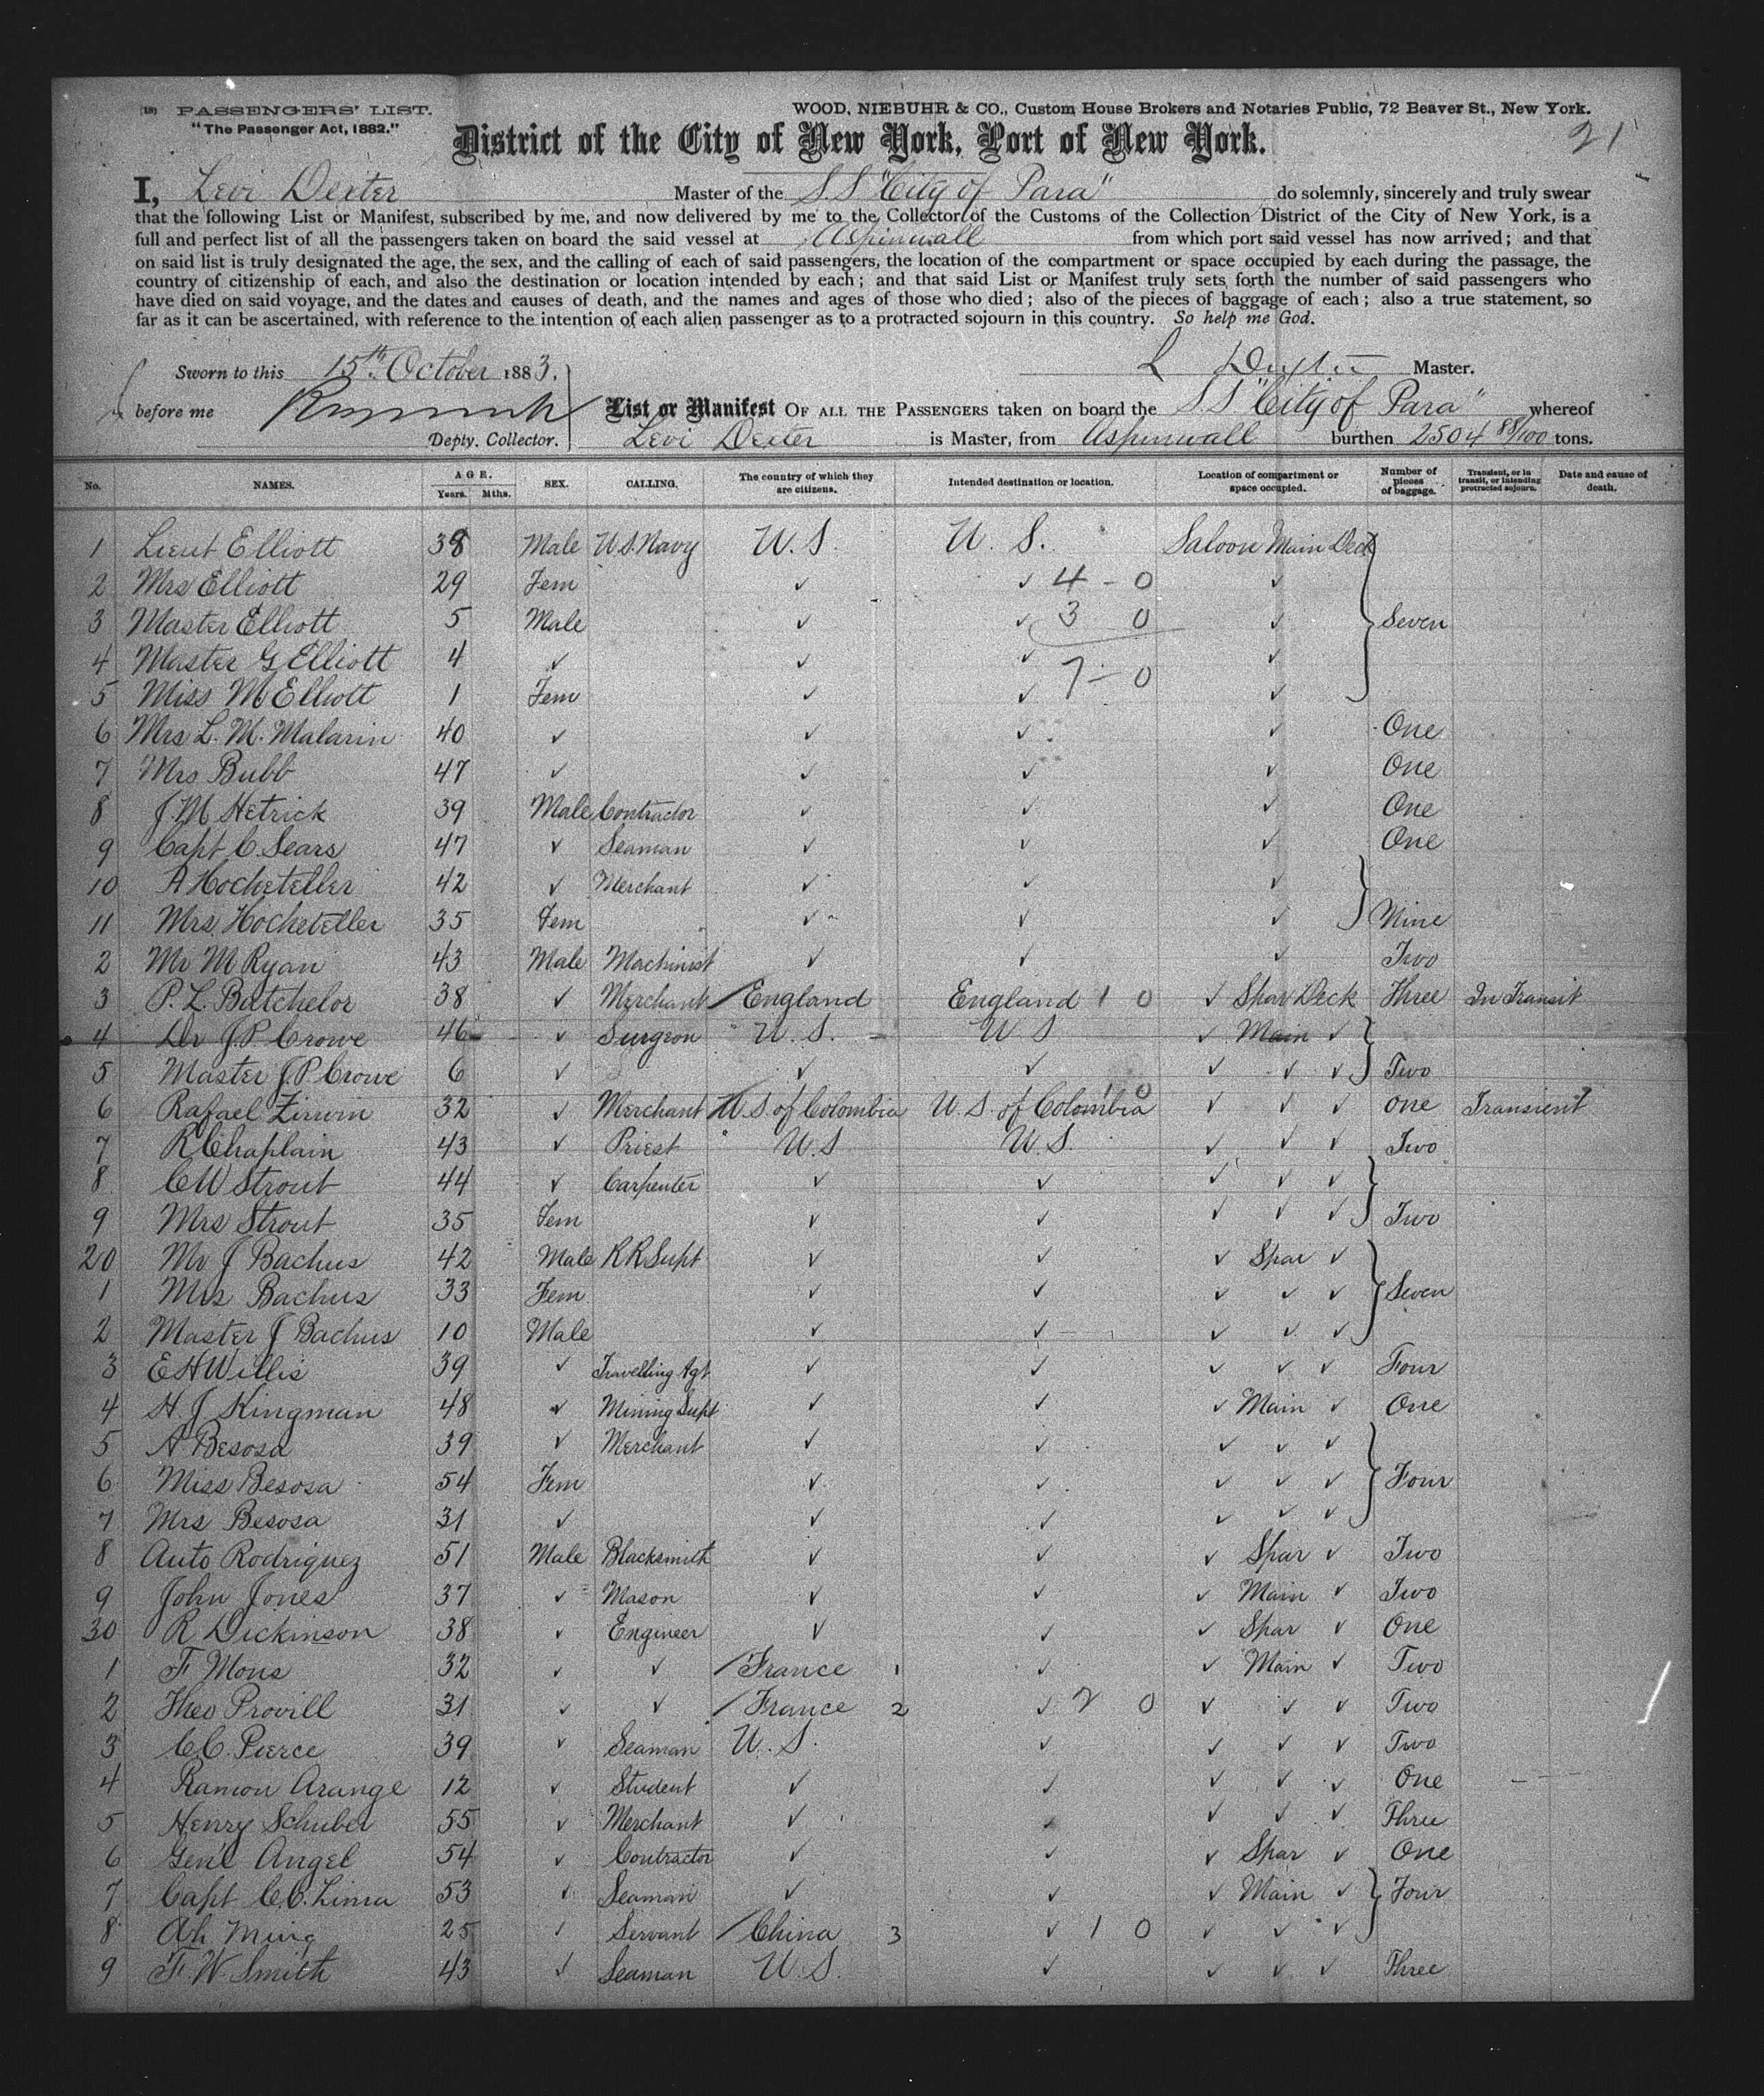 (18) PASSENGERS' LIST.
"The Passenger Act, 1882."
WOOD, NIEBUHR & CO., Custom House Brokers and Notaries Public, 72 Beaver St., New York.
21
District of the City of New York, Port of New York.
I, Levi Dexter Master of the S.S "City of Para" do solemnly, sincerely and truly swear
that the following List or Manifest, subscribed by me, and now delivered by me to the Collector of the Customs of the Collection District of the City of New York, is a
full and perfect list of all the passengers taken on board the said vessel at Aspinwall from which port said vessel has now arrived; and that
on said list is truly designated the age, the sex, and the calling of each of said passengers, the location of the compartment or space occupied by each during the passage, the
country of citizenship of each, and also the destination or location intended by each; and that said List or Manifest truly sets forth the number of said passengers who
have died on said voyage, and the dates and causes of death, and the names and ages of those who died; also of the pieces of baggage of each; also a true statement, so
far as it can be ascertained, with reference to the intention of each alien passenger as to a protracted sojourn in this country. So help me God.
Sworn to this 15th October 1883. L Dexter Master.
before me List or Manifest OF ALL THE PASSENGERS taken on board the S.S "City of Para" whereof
Depty. Collector. Levi Dexter is Master, from Aspinwall burthen 2504 88/100 tons.
No. NAMES. AGE. Years. Mths. SEX. CALLING. The country of which they are citizens. Intended destination or location. Location of compartment or space occupied. Number of pieces of baggage. Transient, or in transit, or intending protracted sojourn. Date and cause of death.
1 Lieut Elliott 38 Male U.S. Navy U.S. U.S. Saloon Main Deck
2 Mrs Elliott 29 Fem ✓ ✓ 4 - 0 ✓
3 Master Elliott 5 Male ✓ ✓ 3 0 ✓ Seven
4 Master G Elliott 4 ✓ ✓ ✓ 7 - 0 ✓
5 Miss M Elliott 1 Fem ✓ ✓ ✓
6 Mrs L. M. Malarin 40 ✓ ✓ ✓ ✓ One
7 Mrs Bubb 47 ✓ ✓ ✓ ✓ One
8 J. M Hetrick 39 Male Contractor ✓ ✓ ✓ One
9 Capt C. Sears 47 ✓ Seaman ✓ ✓ ✓ One
10 A Hocheteller 42 ✓ Merchant ✓ ✓ ✓
11 Mrs. Hocheteller 35 Fem ✓ ✓ ✓ Nine
2 Mr M Ryan 43 Male Machinist ✓ ✓ ✓ Two
3 P. L. Batchelor 38 ✓ Merchant England England 1 0 ✓ Spar Deck Three In Transit
4 Dr J. P. Crowe 46 ✓ Surgeon U.S. U S ✓ Main ✓
5 Master J. P. Crowe 6 ✓ ✓ ✓ ✓ ✓ ✓ Two
6 Rafael Zirwin 32 ✓ Merchant U.S. of Colombia U.S. of Colombia 1 0 ✓ ✓ ✓ One Transient
7 R Chaplain 43 ✓ Priest U.S U.S. ✓ ✓ ✓ Two
8 C W Strout 44 ✓ Carpenter ✓ ✓ ✓ ✓ ✓
9 Mrs Strout 35 Fem ✓ ✓ ✓ ✓ ✓ Two
20 Mr J Bachus 42 Male R R Supt ✓ ✓ ✓ Spar ✓
1 Mrs Bachus 33 Fem ✓ ✓ ✓ ✓ ✓ Seven
2 Master J Bachus 10 Male ✓ ✓ ✓ ✓ ✓
3 E H Willis 39 ✓ Travelling Agt ✓ ✓ ✓ ✓ ✓ Four
4 H. J Kingman 48 ✓ Mining Supt ✓ ✓ ✓ Main ✓ One
5 A Besosa 39 ✓ Merchant ✓ ✓ ✓ ✓ ✓
6 Miss Besosa 54 Fem ✓ ✓ ✓ ✓ ✓ Four
7 Mrs Besosa 31 ✓ ✓ ✓ ✓ ✓ ✓
8 Auto Rodriguez 51 Male Blacksmith ✓ ✓ ✓ Spar ✓ Two
9 John Jones 37 ✓ Mason ✓ ✓ ✓ Main ✓ Two
30 R Dickinson 38 ✓ Engineer ✓ ✓ ✓ Spar ✓ One
1 F Mons 32 ✓ ✓ France 1 ✓ ✓ Main ✓ Two
2 Theo Provill 31 ✓ ✓ France 2 ✓ 2 0 ✓ ✓ ✓ Two
3 C C. Pierce 39 ✓ Seaman U.S. ✓ ✓ ✓ ✓ Two
4 Ramon Arange 12 ✓ Student ✓ ✓ ✓ ✓ ✓ One
5 Henry Schuber 55 ✓ Merchant ✓ ✓ ✓ ✓ ✓ Three
6 Genl Angel 54 ✓ Contractor ✓ ✓ ✓ Spar ✓ One
7 Capt C. C. Lima 53 ✓ Seaman ✓ ✓ ✓ Main ✓ Four
8 Ah Ming 25 ✓ Servant China 3 ✓ 1 0 ✓ ✓ ✓
9 F. W. Smith 43 ✓ Seaman U.S. ✓ ✓ ✓ ✓ Three